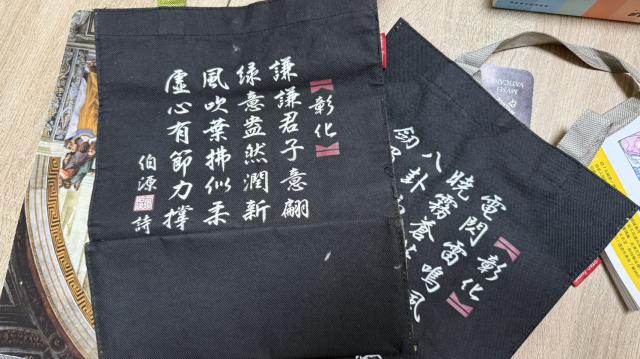 彰化
謙謙君子意翩
綠意盎然潤新
風吹葉拂似柔
虛心有節力撐
伯源
詩
彰化
電閃雷鳴風
曉霧蒼
八卦
勁
MUSEI
VATICANI